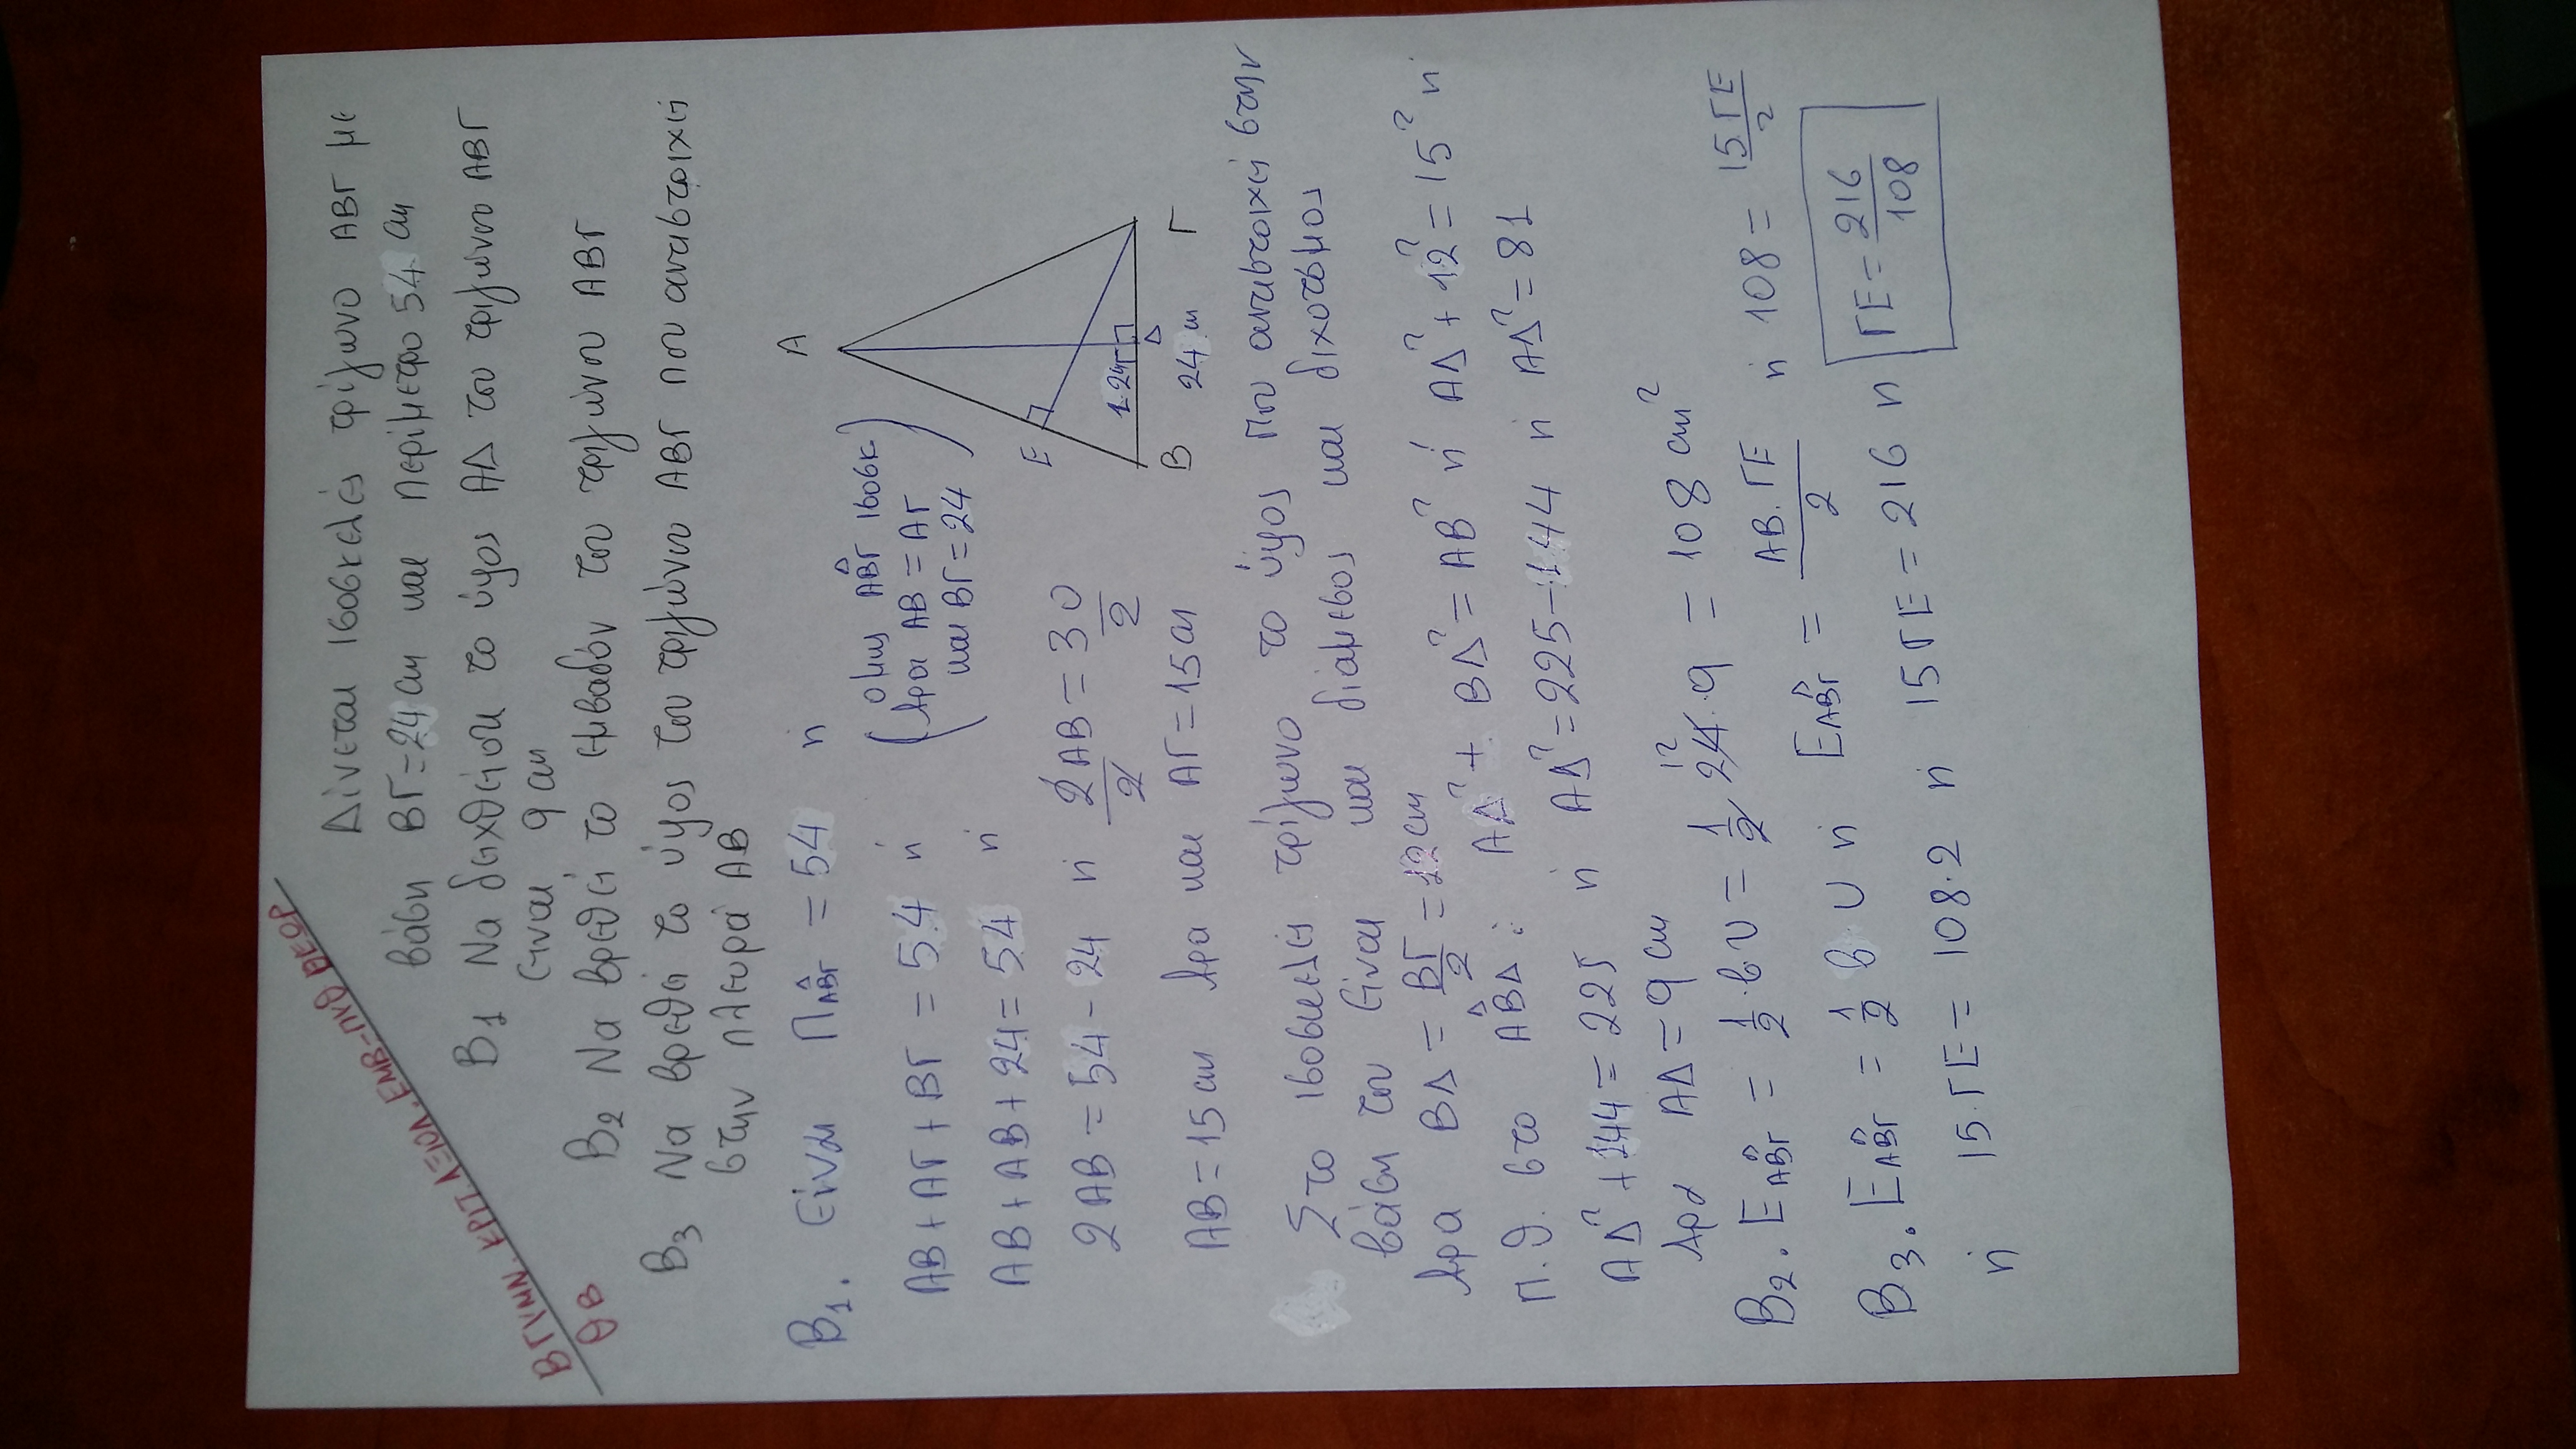 Β ΓΥΜΝ. ΚΡΙΤ. ΑΞΙΟΛ. ΕΜΒ-ΠΥΘ ΘΕΩΡ
ΘΒ
Δίνεται ισοσκελές τρίγωνο ΑΒΓ με
βάση ΒΓ=24 cm και περίμετρο 54 cm
Β1 Να δειχθεί οτι το ύψος ΑΔ του τριγώνου ΑΒΓ
είναι 9 cm
Β2 Να βρεθεί το εμβαδόν του τριγώνου ΑΒΓ
Β3 Να βρεθεί το ύψος του τριγώνου ΑΒΓ που αντιστοιχεί
στην πλευρά ΑΒ
Β1. Είναι Π ΑΒ̂Γ = 54 ή
ΑΒ + ΑΓ + ΒΓ = 54 ή
(όμως ΑΒ̂Γ ισοσκ
άρα ΑΒ = ΑΓ
και ΒΓ = 24)
ΑΒ + ΑΒ + 24 = 54 ή
2ΑΒ = 54 - 24 ή 2ΑΒ/2 = 30/2
ΑΒ = 15 cm άρα και ΑΓ = 15 cm
Α
Ε
1.24
Β Δ Γ
24 cm
Στο ισοσκελές τρίγωνο το ύψος που αντιστοιχεί στην
βάση του είναι και διάμεσος και διχοτόμος
Άρα ΒΔ = ΒΓ/2 = 12 cm
Π.Θ. στο ΑΒ̂Δ: ΑΔ² + ΒΔ² = ΑΒ² ή ΑΔ² + 12² = 15² ή
ΑΔ² + 144 = 225 ή ΑΔ² = 225 - 144 ή ΑΔ² = 81
Άρα ΑΔ = 9 cm
Β2. Ε ΑΒ̂Γ = 1/2 · βυ = 1/2 24 · 9 = 108 cm²
12
Β3. Ε ΑΒ̂Γ = 1/2 β·υ ή Ε ΑΒ̂Γ = ΑΒ·ΓΕ/2 ή 108 = 15·ΓΕ/2
ή 15·ΓΕ = 108·2 ή 15ΓΕ = 216 ή ΓΕ = 216/108